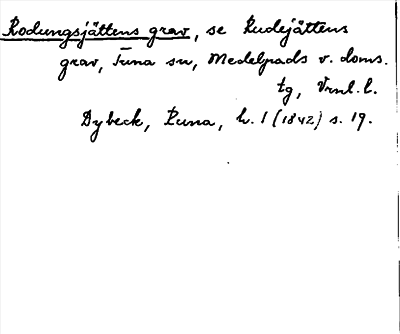 Rodungsjättens grav, se Rudejättens
grav, Tuna sn, Medelpads v. doms.
tg, Vrnl. l.
Dybeck, Runa, h. 1 (1842) s. 19.